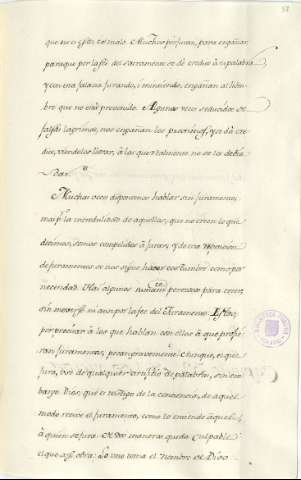 que no es esto es malo. Muchos perjuran, para engañar,
paraque por la fé del sacramento se dé credito à su palabra,
y con esa falacia jurando, i mintiendo, engañan al hom-
bre que no està prevenido. Algunas veces seducidos de
falsas lagrimas, nos engañan los y se dà cre-
dito, viendolos llorar, à las que realmente no se les debia
dar.
Muchas veces disponemos hablar sin juramento;
mas p.r la incredulidad de aquellos, que no creen lo que
decimos, somos compelidos à jurar; y de tra repeticion
de juramentos se nos sigue hacer costumbre como por
necesidad. Hai algunos para creer,
sin aun por la fee del Juramento. Estos,
por precisar à los que hablan con ellos à que profie-
ran juramentos, pecan gravemente. Aunque, el que
jura, use de qualquier artificio de palabras, sin em-
bargo Dios, que es testigo de la conciencia, de aquel
modo recive el juramento, como lo entiende aquel,
à quien se jura. De dos maneras queda Culpable
el que assi obra: Lo uno toma el Nombre de Dios